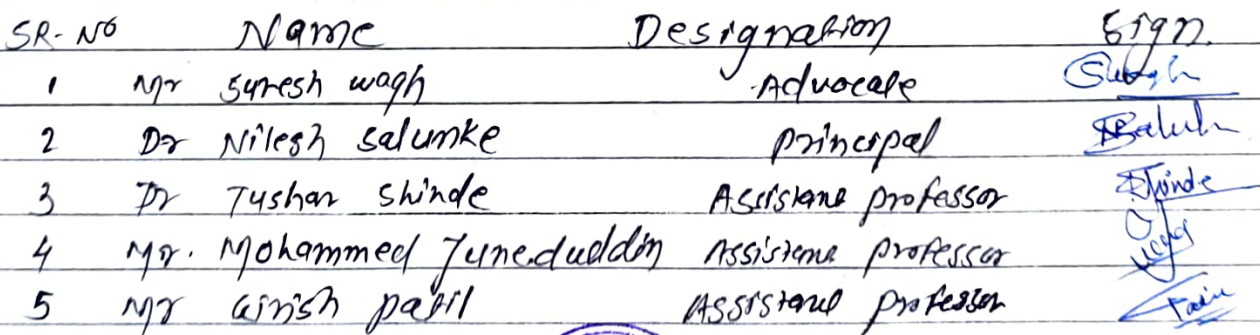 SR. No Name Designation Sign.
1 Mr Suresh wagh Advocate
2 Dr Nilesh Salunke principal
3 Dr Tushar Shinde Assistant professor Shinde
4 Mr. Mohammed Juneduddin Assistant professor
5 Mr Girish patil Assistant professor